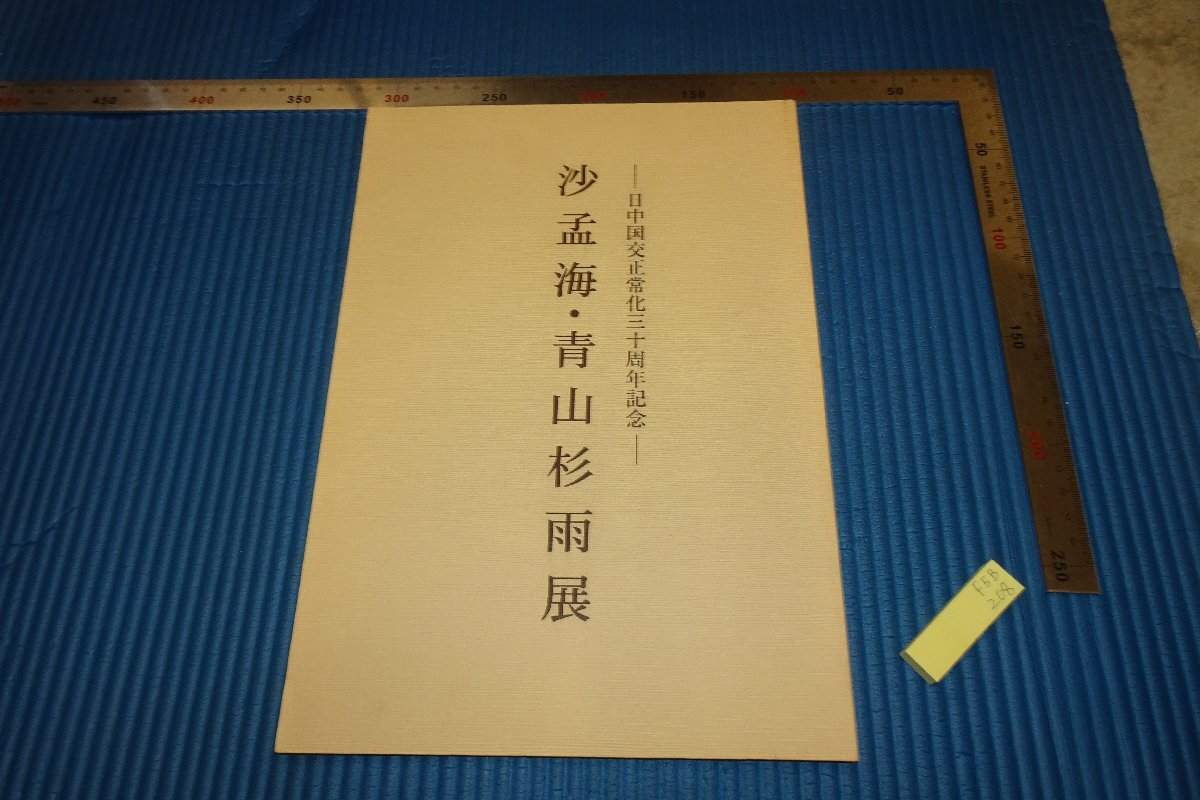 ―日中国交正常化三十周年記念―
沙孟海・青山杉雨展
450
400
350
300
250
150
50
50
STAINLESS STEEL
100
150
200
250
F5B
208